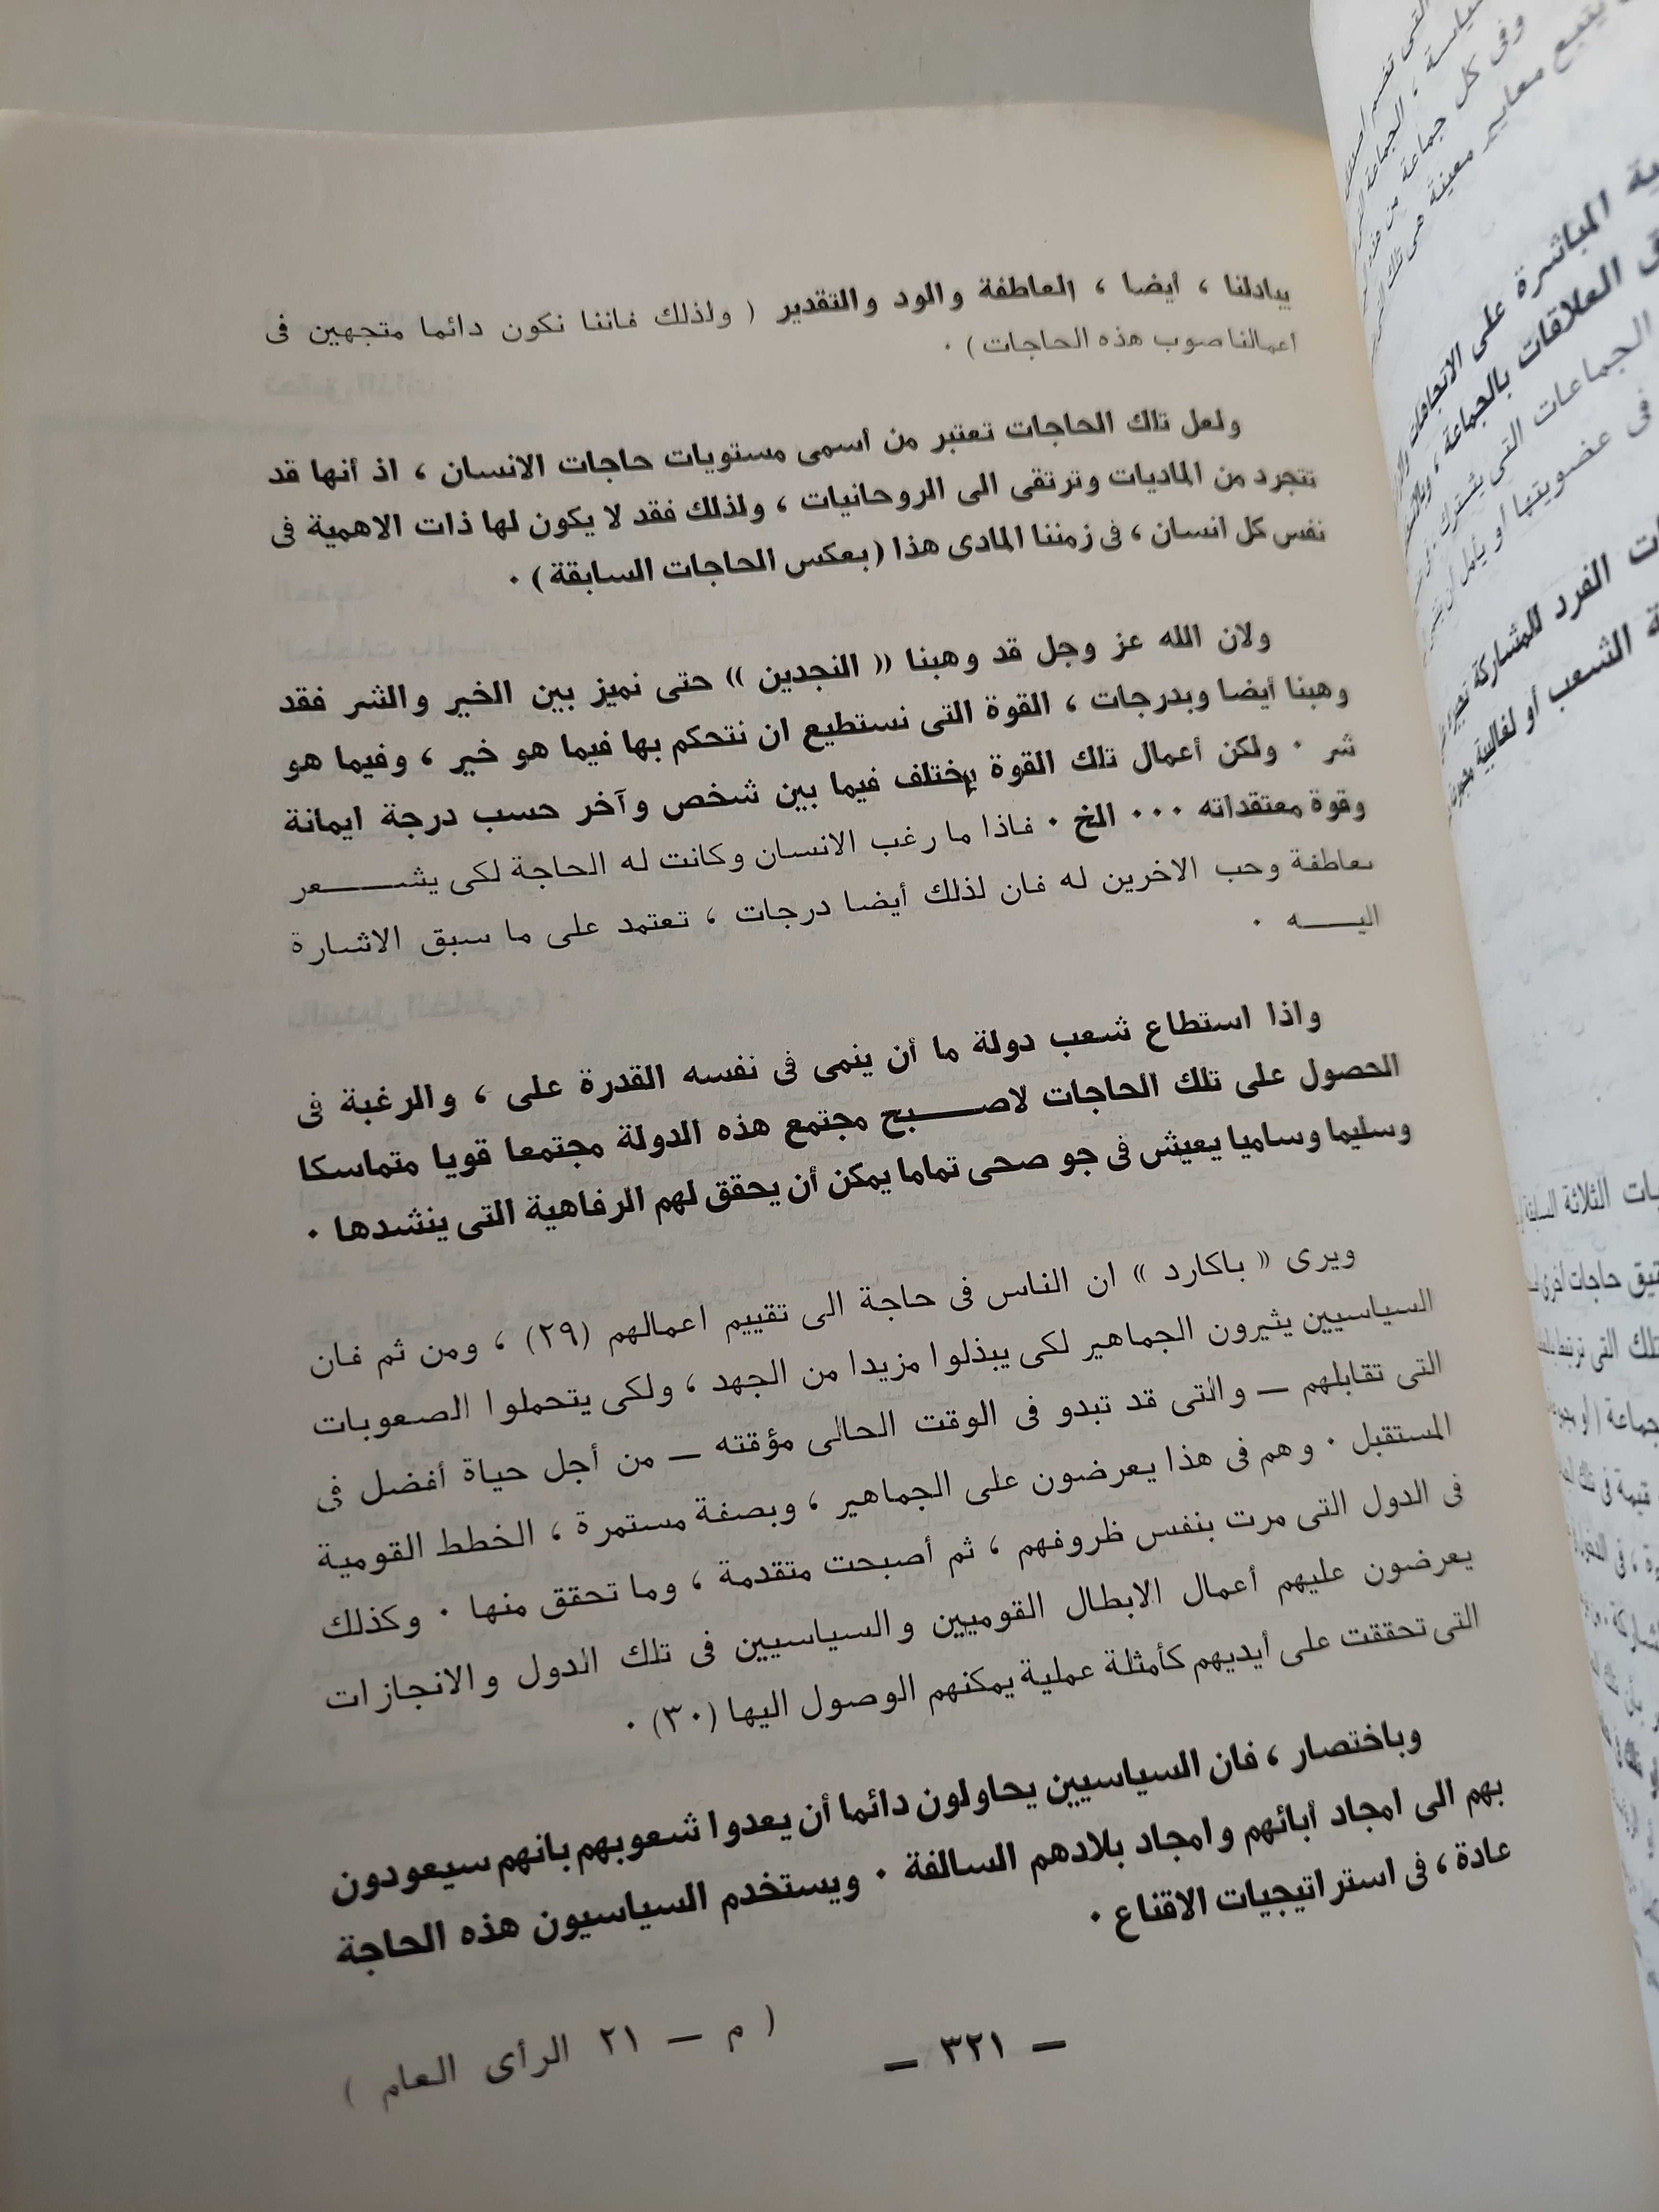 يبادلنا ، أيضا ، العاطفة والود والتقدير ( ولذلك فاننا نكون دائما متجهين فى
اعمالنا صوب هذه الحاجات ) ٠
ولعل تلك الحاجات تعتبر من أسمى مستويات حاجات الانسان ، اذ أنها قد
تتجرد من الماديات وترتقى الى الروحانيات ، ولذلك فقد لا يكون لها ذات الاهمية فى
نفس كل انسان ، فى زمننا المادى هذا ( بعكس الحاجات السابقة ) ٠
ولان الله عز وجل قد وهبنا « النجدين » حتى نميز بين الخير والشر فقد
وهبنا أيضا وبدرجات ، القوة التى نستطيع ان نتحكم بها فيما هو خير ، وفيما هو
شر ٠ ولكن أعمال تلك القوة يختلف فيما بين شخص وآخر حسب درجة ايمانة
وقوة معتقداته ٠٠٠ الخ ٠ فاذا ما رغب الانسان وكانت له الحاجة لكى يشـــــعر
بعاطفة وحب الاخرين له فان لذلك أيضا درجات ، تعتمد على ما سبق الاشارة
اليـــــه ٠
واذا استطاع شعب دولة ما أن ينمى فى نفسه القدرة على ، والرغبة فى
الحصول على تلك الحاجات لاصـــــبح مجتمع هذه الدولة مجتمعا قويا متماسكا
وسليما وساميا يعيش فى جو صحى تماما يمكن أن يحقق لهم الرفاهية التى ينشدها ٠
ويرى « باكارد » ان الناس فى حاجة الى تقييم اعمالهم (٢٩) ، ومن ثم فان
السياسيين يثيرون الجماهير لكى يبذلوا مزيدا من الجهد ، ولكى يتحملوا الصعوبات
التى تقابلهم — والتى قد تبدو فى الوقت الحالى مؤقته — من أجل حياة أفضل فى
المستقبل ٠ وهم فى هذا يعرضون على الجماهير ، وبصفة مستمرة ، الخطط القومية
فى الدول التى مرت بنفس ظروفهم ، ثم أصبحت متقدمة ، وما تحقق منها ٠ وكذلك
يعرضون عليهم أعمال الابطال القوميين والسياسيين فى تلك الدول والانجازات
التى تحققت على أيديهم كأمثلة عملية يمكنهم الوصول اليها (٣٠) ٠
وباختصار ، فان السياسيين يحاولون دائما أن يعدوا شعوبهم بانهم سيعودون
بهم الى امجاد أبائهم وامجاد بلادهم السالفة ٠ ويستخدم السياسيون هذه الحاجة
عادة ، فى استراتيجيات الاقناع ٠
— ٣٢١ —
( م — ٢١ الرأى العام )
وفى كل جماعة من
يتبع معايير معينة هى تلك
المباشرة على الاتجاهات
العلاقات بالجماعة ،
الجماعات التى يشترك
فى عضويتها أو يأمل أن
الفرد للمشاركة
الشعب أو لغالبية
الثلاثة السابقة
حاجات أخرى
تلك التى
قيمة فى تلك